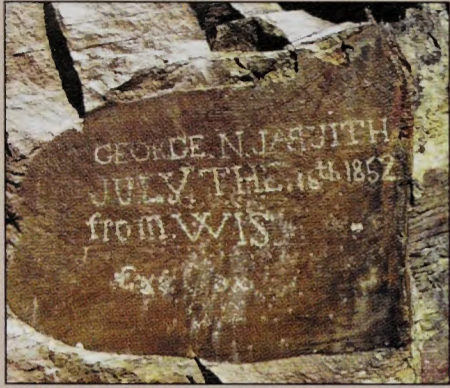 GEORGE. N. JAQUITH
JULY, THE. 16th. 1852
from. WIS